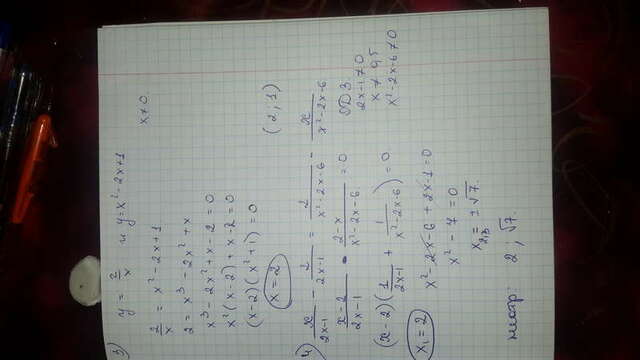 3) y = 2/x и y = x² - 2x + 1
x ≠ 0
2/x = x² - 2x + 1
2 = x³ - 2x² + x
x³ - 2x² + x - 2 = 0
x²(x-2) + x - 2 = 0
(x-2)(x²+1) = 0
x = 2
(2; 1)
4) x/(2x-1) - 2/(2x-1) = 2/(x²-2x-6) - x/(x²-2x-6)
(x-2)/(2x-1) = (2-x)/(x²-2x-6) = 0
ОДЗ.
2x-1 ≠ 0
x ≠ 0,5
x²-2x-6 ≠ 0
(x-2)(1/(2x-1) + 1/(x²-2x-6)) = 0
x₁ = 2
x² - 2x - 6 + 2x - 1 = 0
x² - 7 = 0
x₂,₃ = ±√7.
2; √7